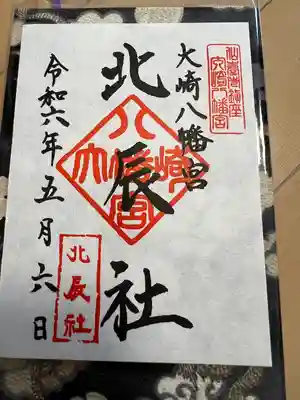 大崎八幡宮
大崎八幡宮
北辰社
大崎八幡宮
令和六年五月六日
北辰社